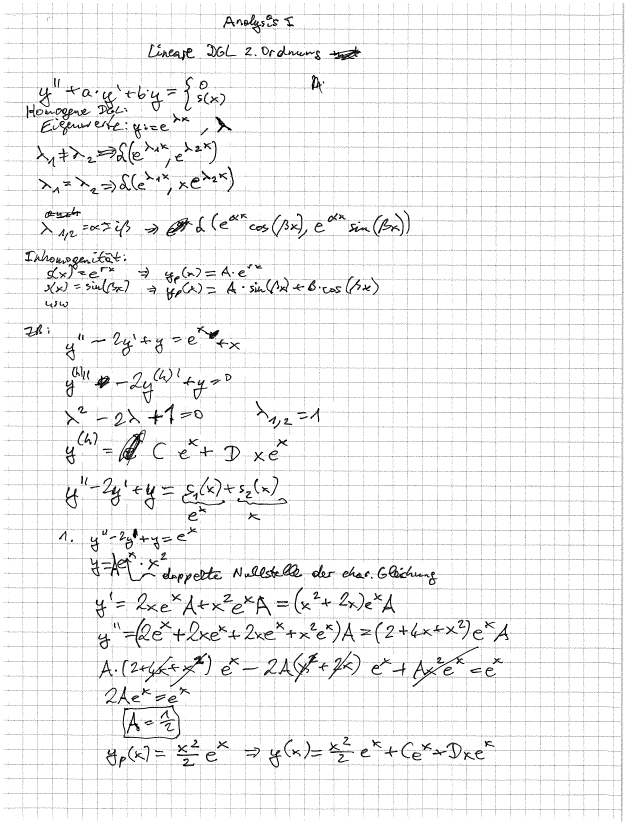 Analysis I
Lineare DGL 2. Ordnung
y'' + a·y' + b·y = { 0
s(x)
Homogene DGL:
Eigenwerte: y = e^{λx}, λ
λ₁ ≠ λ₂ ⇒ L(e^{λ₁x}, e^{λ₂x})
λ₁ = λ₂ ⇒ L(e^{λ₁x}, xe^{λ₂x})
λ₁,₂ = α ± iβ ⇒ L(e^{αx} cos(βx), e^{αx} sin(βx))
Inhomogenität:
s(x) = e^{rx} ⇒ y_p(x) = A·e^{rx}
s(x) = sin(βx) ⇒ y_p(x) = A·sin(βx) + B·cos(βx)
usw
zB:
y'' - 2y' + y = e^x + x
y^{(h)}'' - 2y^{(h)}' + y = 0
λ² - 2λ + 1 = 0 λ₁,₂ = 1
y^{(h)} = C e^x + D xe^x
y'' - 2y' + y = s₁(x) + s₂(x)
e^x x
1. y'' - 2y' + y = e^x
y = Ae^x · x²
doppelte Nullstelle der char. Gleichung
y' = 2xe^x A + x²e^x A = (x² + 2x)e^x A
y'' = (2e^x + 2xe^x + 2xe^x + x²e^x)A = (2 + 4x + x²)e^x A
A·(2 + 4x + x²) e^x - 2A(x² + 2x) e^x + Ax²e^x = e^x
2Ae^x = e^x
A = 1/2
y_p(x) = x²/2 e^x ⇒ y(x) = x²/2 e^x + Ce^x + Dxe^x